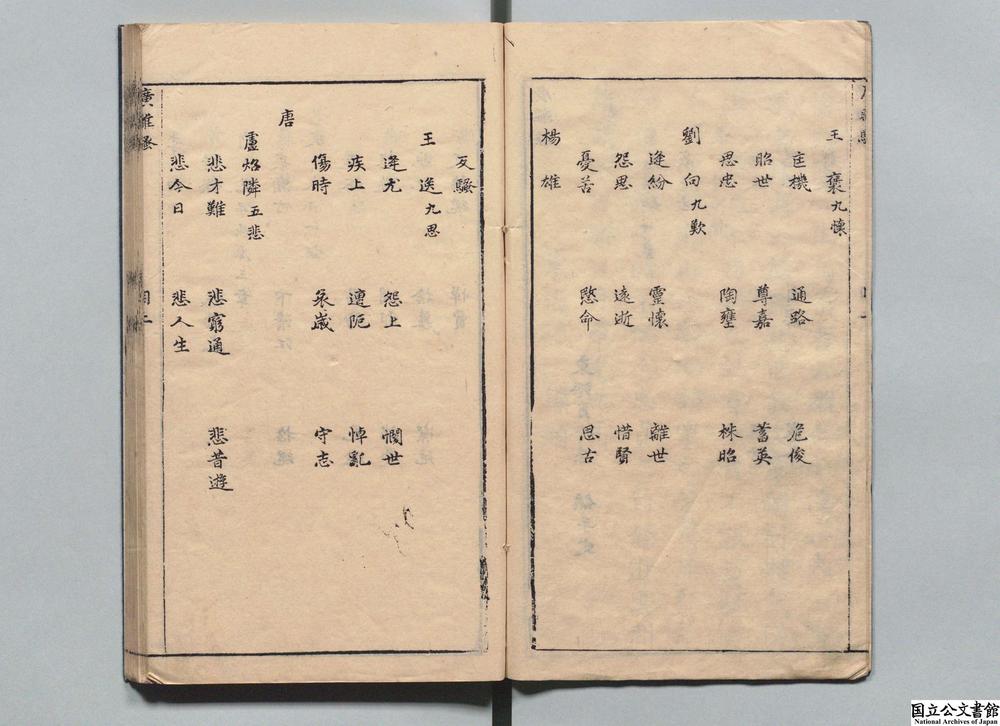 王 褒九懷
匡機 通路 危俊
昭世 尊嘉 蓄英
思忠 陶壅 株昭
劉 向九歎
逢紛 靈懷 離世
怨思 遠逝 惜賢
憂苦 愍命 思古
楊 雄
反騷
王 逸九思
逢尤 怨上 憫世
疾上 遭阨 悼亂
傷時 哀歲 守志
唐
盧炤隣五悲
悲才難 悲窮通 悲昔遊
悲今日 悲人生
廣離騷
目二
国立公文書館
National Archives of Japan